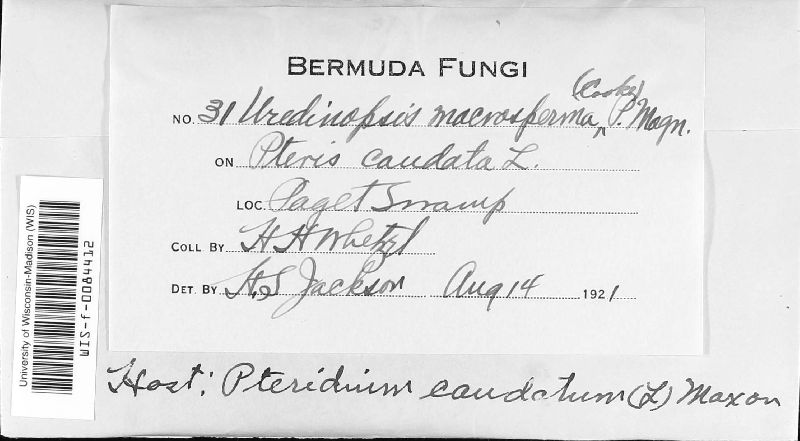 BERMUDA FUNGI
NO. 31 Uredinopsis macrosperma (Cooke) P. Magn.
ON Pteris caudata L.
LOC. Paget Swamp
COLL. BY H H Whetzel
DET. BY H. S Jackson Aug 14 1921
Host: Pteridium caudatum (L) Maxon
University of Wisconsin-Madison (WIS)
WIS-f-0084412